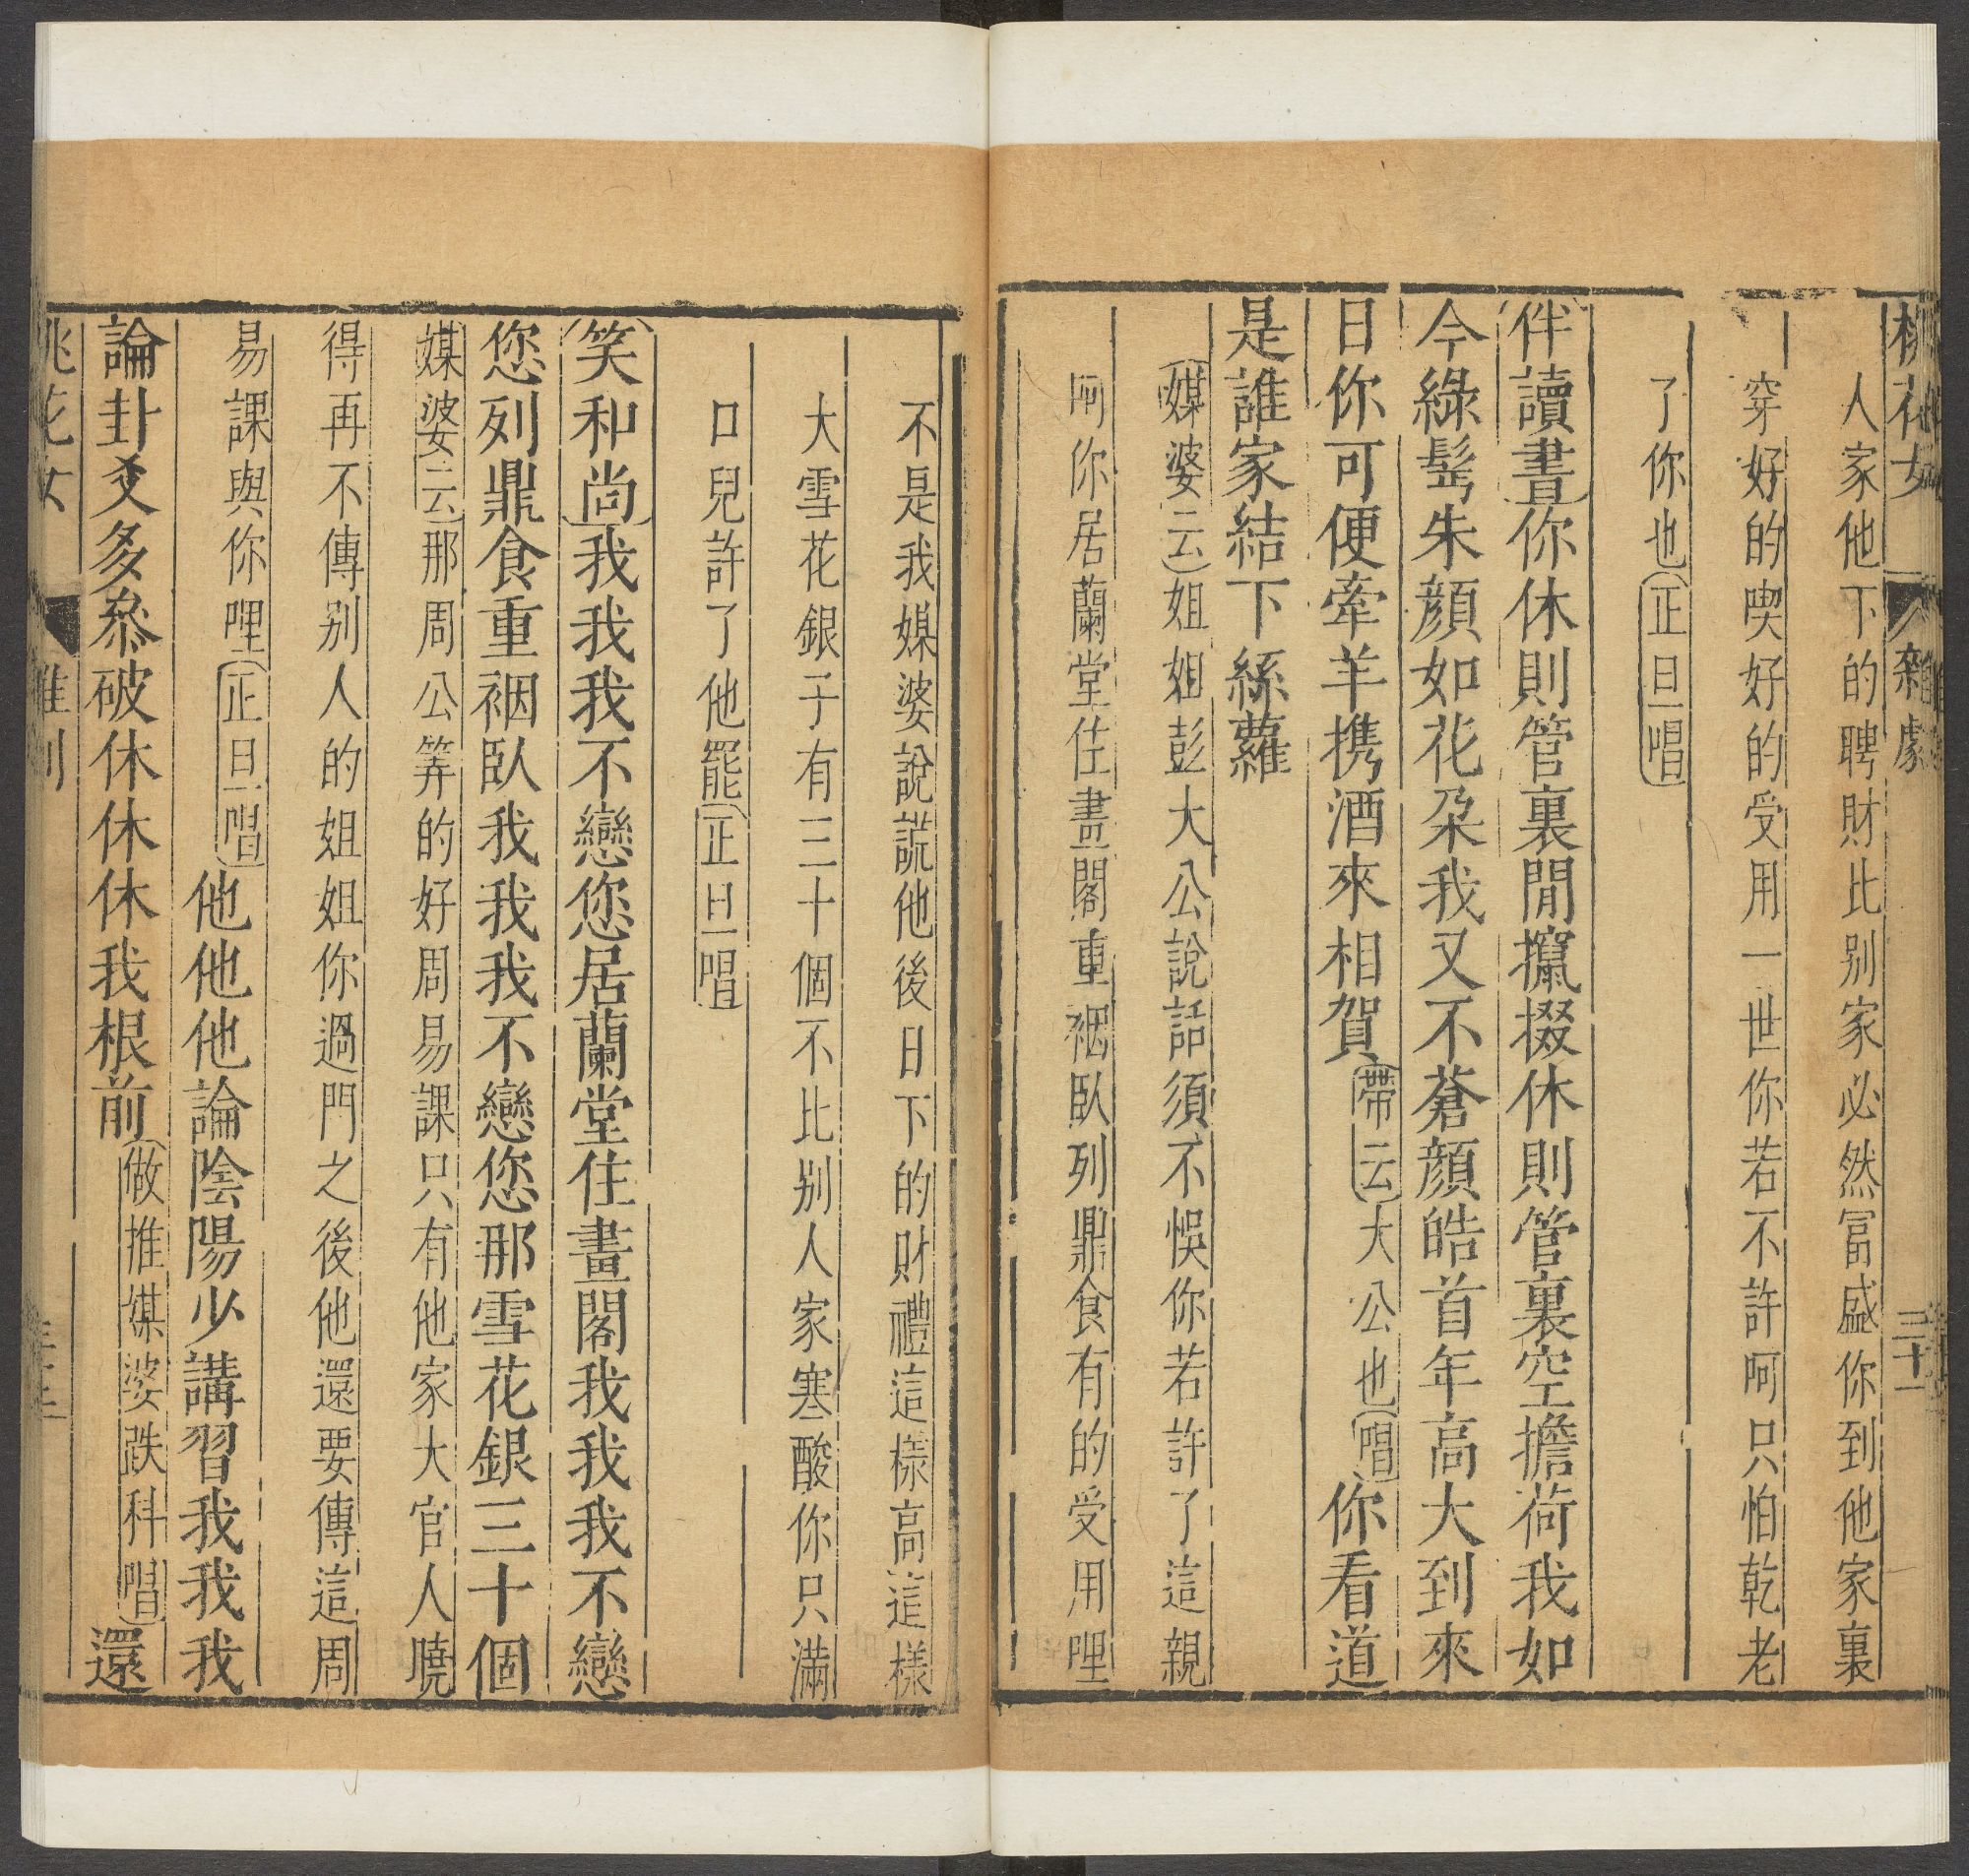 桃花女 雜劇 三十一
人家他下的聘財比别家必然冨盛你到他家裏
穿好的喫好的受用一世你若不許呵只怕乾老
了你也(正旦唱)
(伴讀書)你休則管裏閒攛掇休則管裏空擔荷我如
今綠髩朱顏如花朶我又不蒼顏皓首年高大到來
日你可便牽羊携酒來相賀(帶云)大公也(唱)你看道
是誰家結下絲蘿
(媒婆云)姐姐彭大公說話須不悞你若許了這親
呵你居蘭堂住畫閣重裀臥列鼎食有的受用哩
不是我媒婆說謊他後日下的財禮這樣高這樣
大雪花銀子有三十個不比别人家寒酸你只滿
口兒許了他罷(正旦唱)
(笑和尚)我我我不戀您居蘭堂住畫閣我我我不戀
您列鼎食重裀臥我我我不戀您那雪花銀三十個
(媒婆云)那周公筭的好周易課只有他家大官人曉
得再不傳别人的姐姐你過門之後他還要傳這周
易課與你哩(正旦唱)他他他論陰陽少講習我我我
論卦爻多叅破休休休我根前(做推媒婆跌科唱)還
桃花女